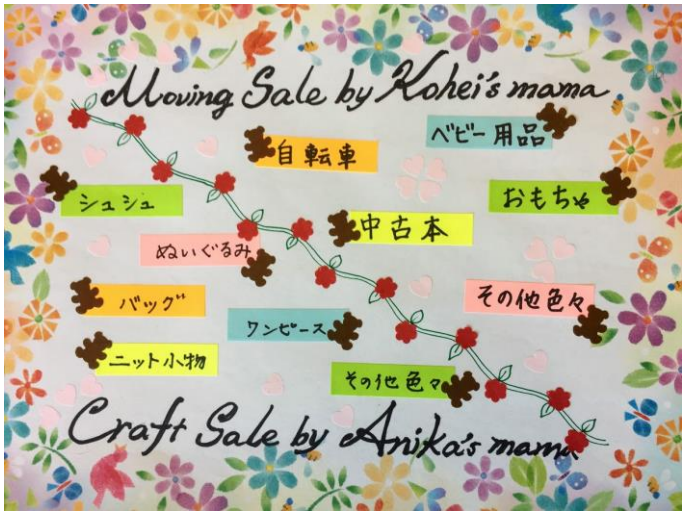 Moving Sale by Kohei's mama
ベビー用品
自転車
おもちゃ
シュシュ
中古本
ぬいぐるみ
その他色々
バッグ
ワンピース
ニット小物
その他色々
Craft Sale by Anika's mama